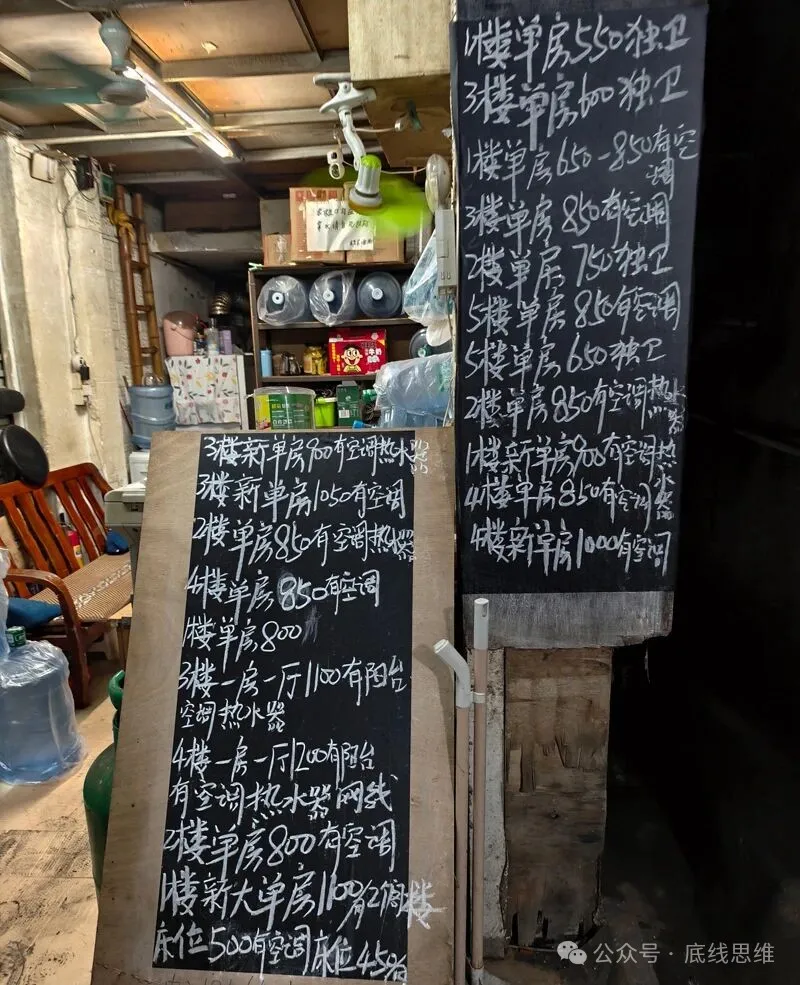 1楼单房550独卫
3楼单房600独卫
1楼单房650-850有空调
3楼单房850有空调
2楼单房750独卫
5楼单房850有空调
5楼单房650独卫
2楼单房850有空调热水器
1楼新单房900有空调热水器
4楼单房850有空调
4楼新单房1000有空调
3楼新单房900有空调热水
3楼新单房1050有空调
2楼单房850有空调热水器
4楼单房850有空调
1楼单房800
3楼一房一厅1100有阳台
空调热水器
4楼一房一厅1200有阳台
有空调热水器网线
2楼单房800有空调
1楼新大单房1100有空调
床位500有空调床位450
公众号·底线思维